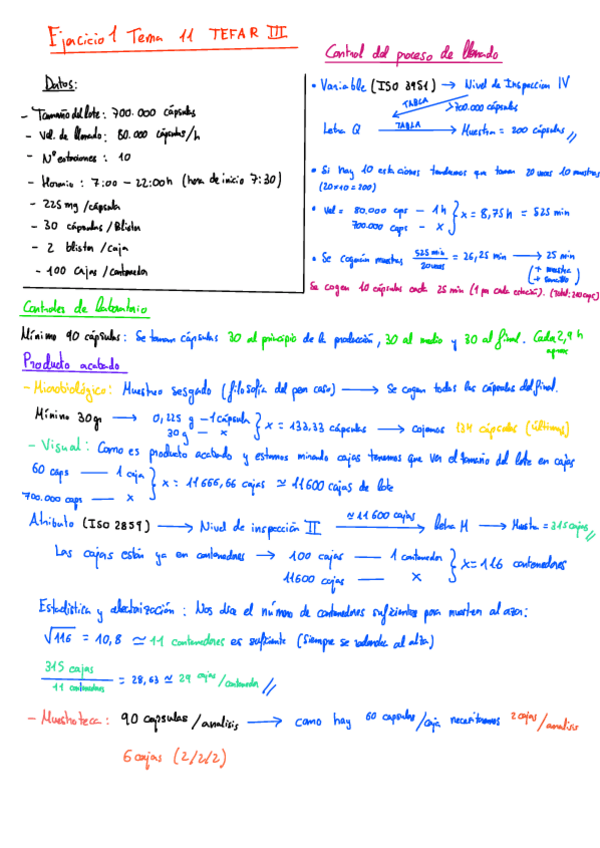 Ejercicio 1 Tema 11 TEFAR III
Datos:
- Tamaño del lote: 700.000 cápsulas
- Vel. de llenado: 80.000 cápsulas/h
- Nº estaciones: 10
- Horario: 7:00 - 22:00h (hora de inicio 7:30)
- 225 mg/cápsula
- 30 cápsulas/Blister
- 2 blister/caja
- 100 cajas/contenedor
Control del proceso de llenado
• Variable (ISO 3951) → Nivel de Inspeccion IV
TABLA >700.000 cápsulas
Letra Q TABLA → Muestra = 200 cápsulas //
• Si hay 10 estaciones tendremos que tomar 20 veces 10 muestras
(20×10=200)
• Vel = 80.000 caps - 1h } x = 8,75h = 525 min
700.000 caps - x
• Se cogerán muestras 525 min / 20 veces = 26,25 min → 25 min
(+ muestra)
(+ sencillo)
Se cogen 10 cápsulas cada 25 min (1 por cada estación). (Total: 210 caps)
Controles de laboratorio
Mínimo 90 cápsulas: Se toman cápsulas 30 al principio de la producción, 30 al medio y 30 al final. Cada 2,9 h
aprox
Producto acabado
- Microbiológico: Muestreo sesgado (filosofía del peor caso) → Se cogen todas las cápsulas del final.
Mínimo 30gr → 0,225 g - 1 cápsula } x = 133,33 cápsulas → cojemos 134 cápsulas (últimas)
30 g - x
- Visual: Como es producto acabado y estamos mirando cajas tenemos que ver el tamaño del lote en cajas
60 caps — 1 caja } x = 11666,66 cajas ≃ 11600 cajas de lote
700.000 caps — x
Atributo (ISO 2859) → Nivel de inspección II ≃ 11600 cajas → letra M → Muestra = 315 cajas //
Las cajas están ya en contenedores → 100 cajas — 1 contenedor } x = 116 contenedores
11600 cajas — x
Estadística y aleatorización: Nos da el número de contenedores suficientes para muestreo al azar:
√116 = 10,8 ≃ 11 contenedores es suficiente (Siempre se redondea al alza)
315 cajas / 11 contenedores = 28,63 ≃ 29 cajas/contenedor //
- Muestroteca: 90 capsulas/analisis → como hay 60 capsulas/caja necesitamos 2 cajas/analisis
6 cajas (2/2/2)